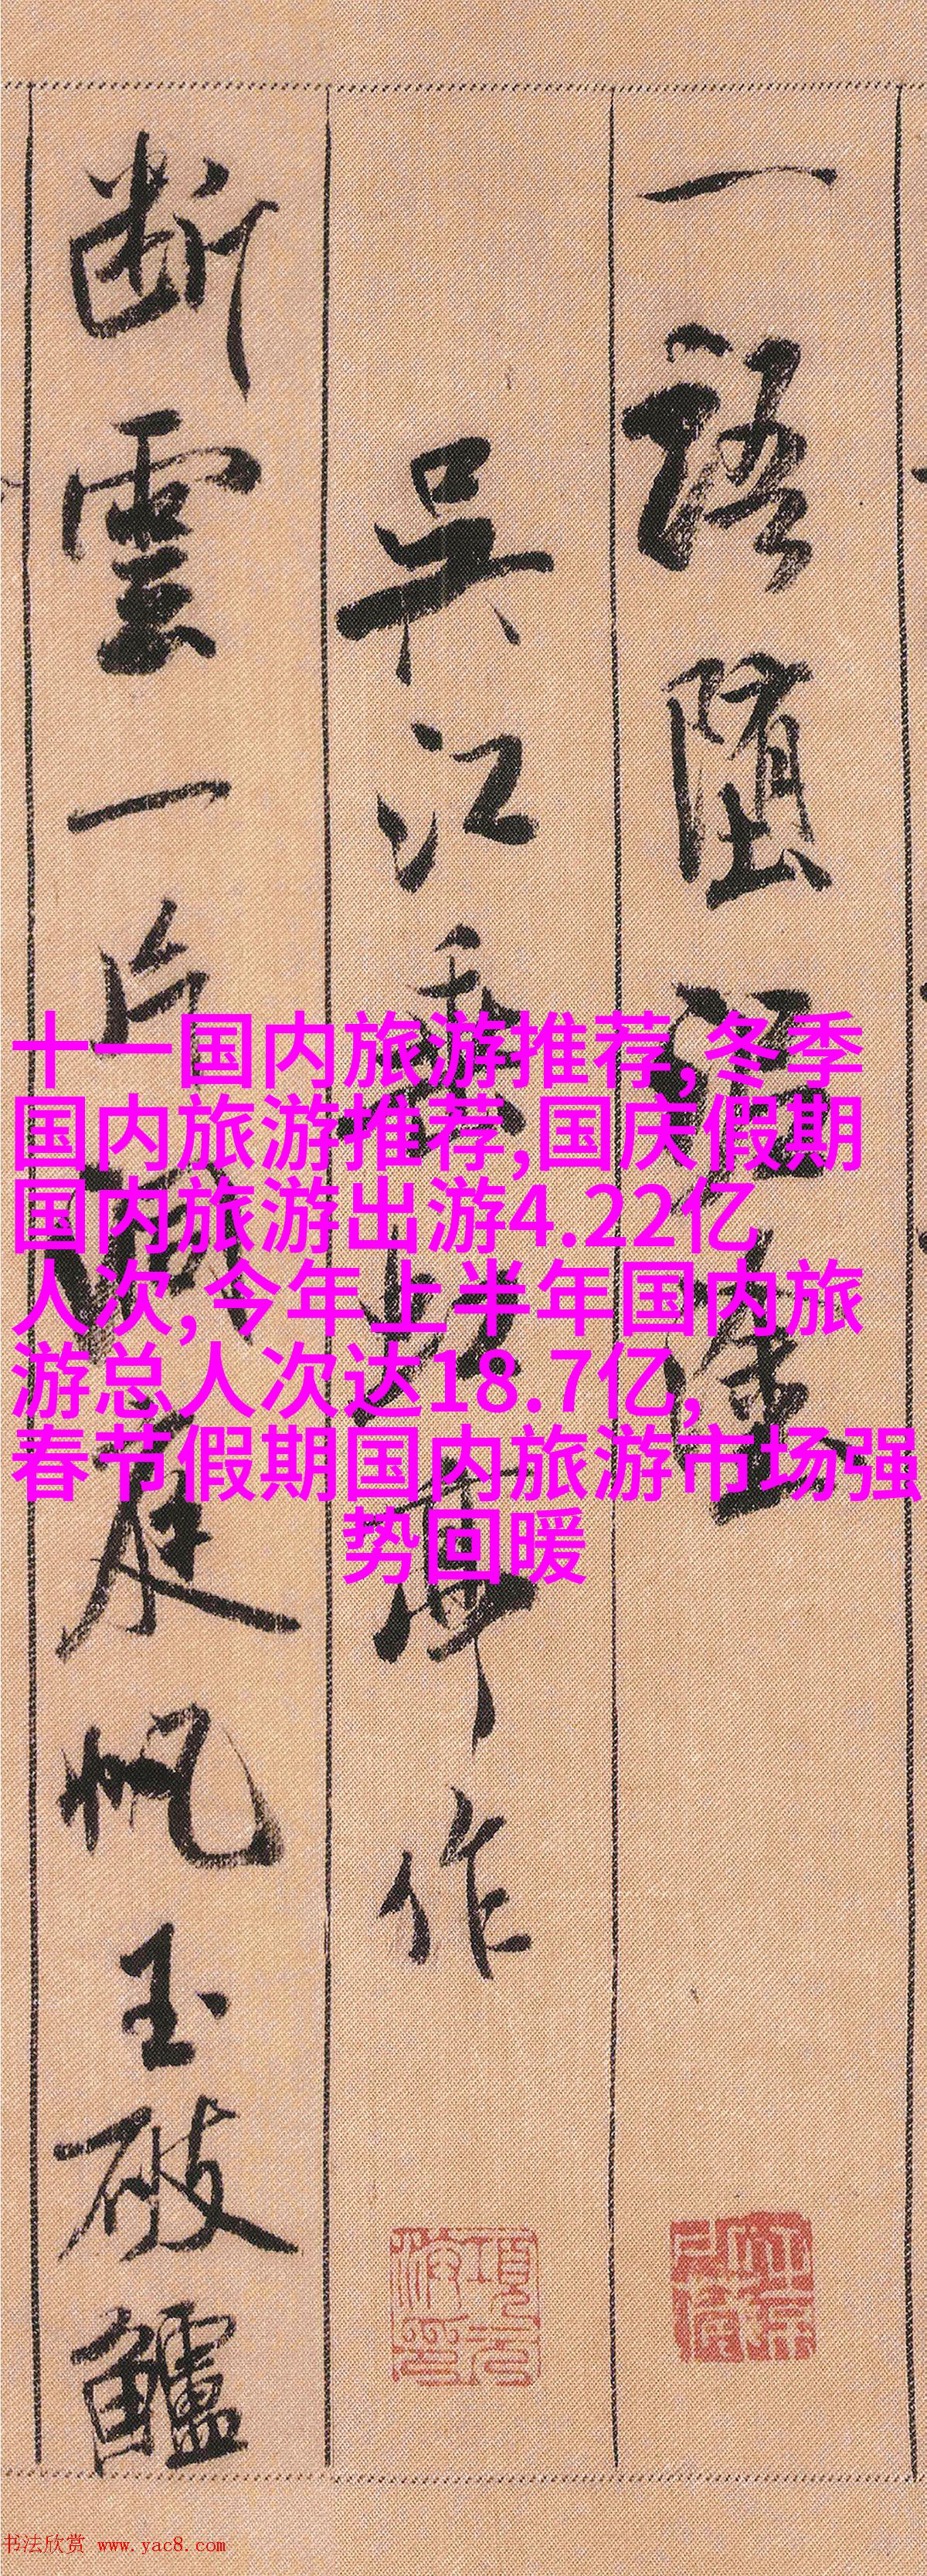 一語墮泥塗
吳江垂虹亭作
断雲一片洞庭帆玉破鱸
十一国内旅游推荐,冬季
国内旅游推荐,国庆假期
国内旅游出游4.22亿
人次,今年上半年国内旅
游总人次达18.7亿,
春节假期国内旅游市场强
势回暖
书法欣赏 www.yac8.com